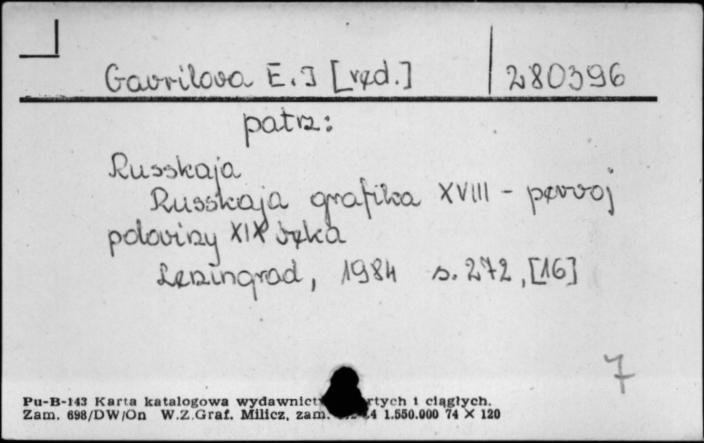 Gavrilova E. I [red.] 280396
patrz:
Russkaja
Russkaja grafika XVIII - pervoj
poloviny XIX veka
Leningrad, 1984 s. 272, [16]
7
Pu-B-143 Karta katalogowa wydawnict ciągłych.
Zam. 698/DW/On W.Z.Graf. Milicz, zam. 1.550.000 74 × 120